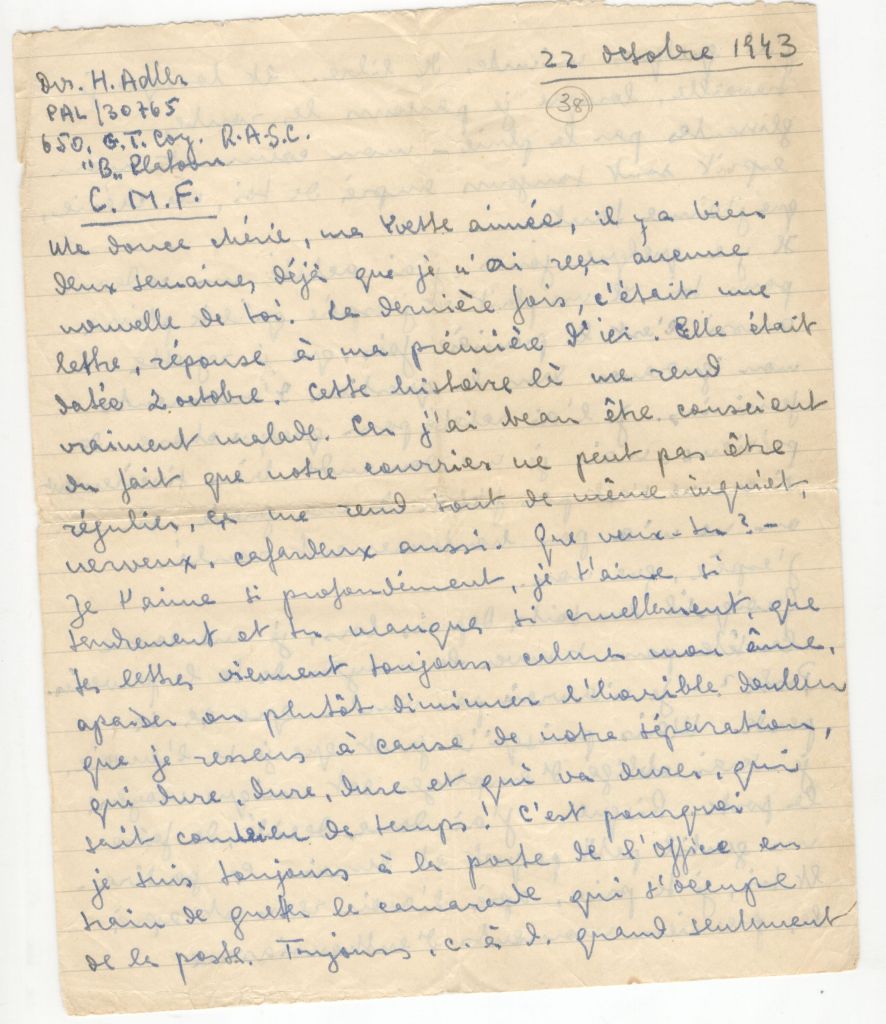 22 octobre 1943
38
Dvr. H. Adler
PAL/30765
650, G.T. Coy. R.A.S.C.
"B" Platoon
C. M. F.
Ma douce chérie, ma Yvette aimée, il y a bien
deux semaines déjà que je n'ai reçu aucune
nouvelle de toi. La dernière fois, c'était une
lettre, réponse à ma première d'ici. Elle était
datée 2 octobre. Cette histoire là me rend
vraiment malade. Car j'ai beau être conscient
du fait que notre courrier ne peut pas être
régulier, ça me rend tout de même inquiet,
nerveux, cafardeux aussi. Que veux-tu? -
Je t'aime si profondément, je t'aime si
tendrement et tu manques si cruellement, que
tes lettres viennent toujours calmer mon âme,
apaiser ou plutôt diminuer l'horrible douleur
que je ressens à cause de notre séparation,
qui dure, dure, dure et qui va durer, qui
sait combien de temps! C'est pourquoi
je suis toujours à la porte de l'office en
train de guetter le camarade qui s'occupe
de la poste. Toujours, c. à d. quand seulement